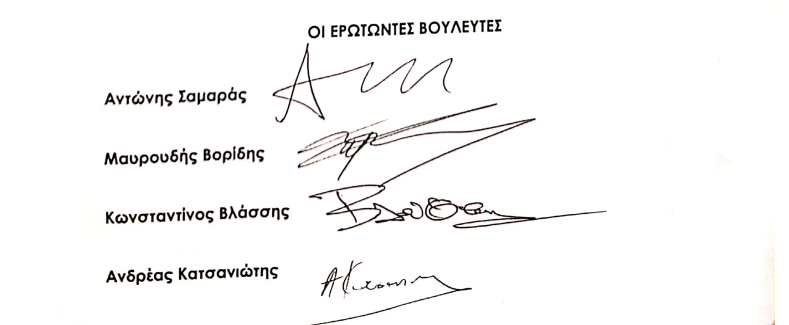 ΟΙ ΕΡΩΤΩΝΤΕΣ ΒΟΥΛΕΥΤΕΣ
Αντώνης Σαμαράς
Μαυρουδής Βορίδης
Κωνσταντίνος Βλάσσης
Ανδρέας Κατσανιώτης